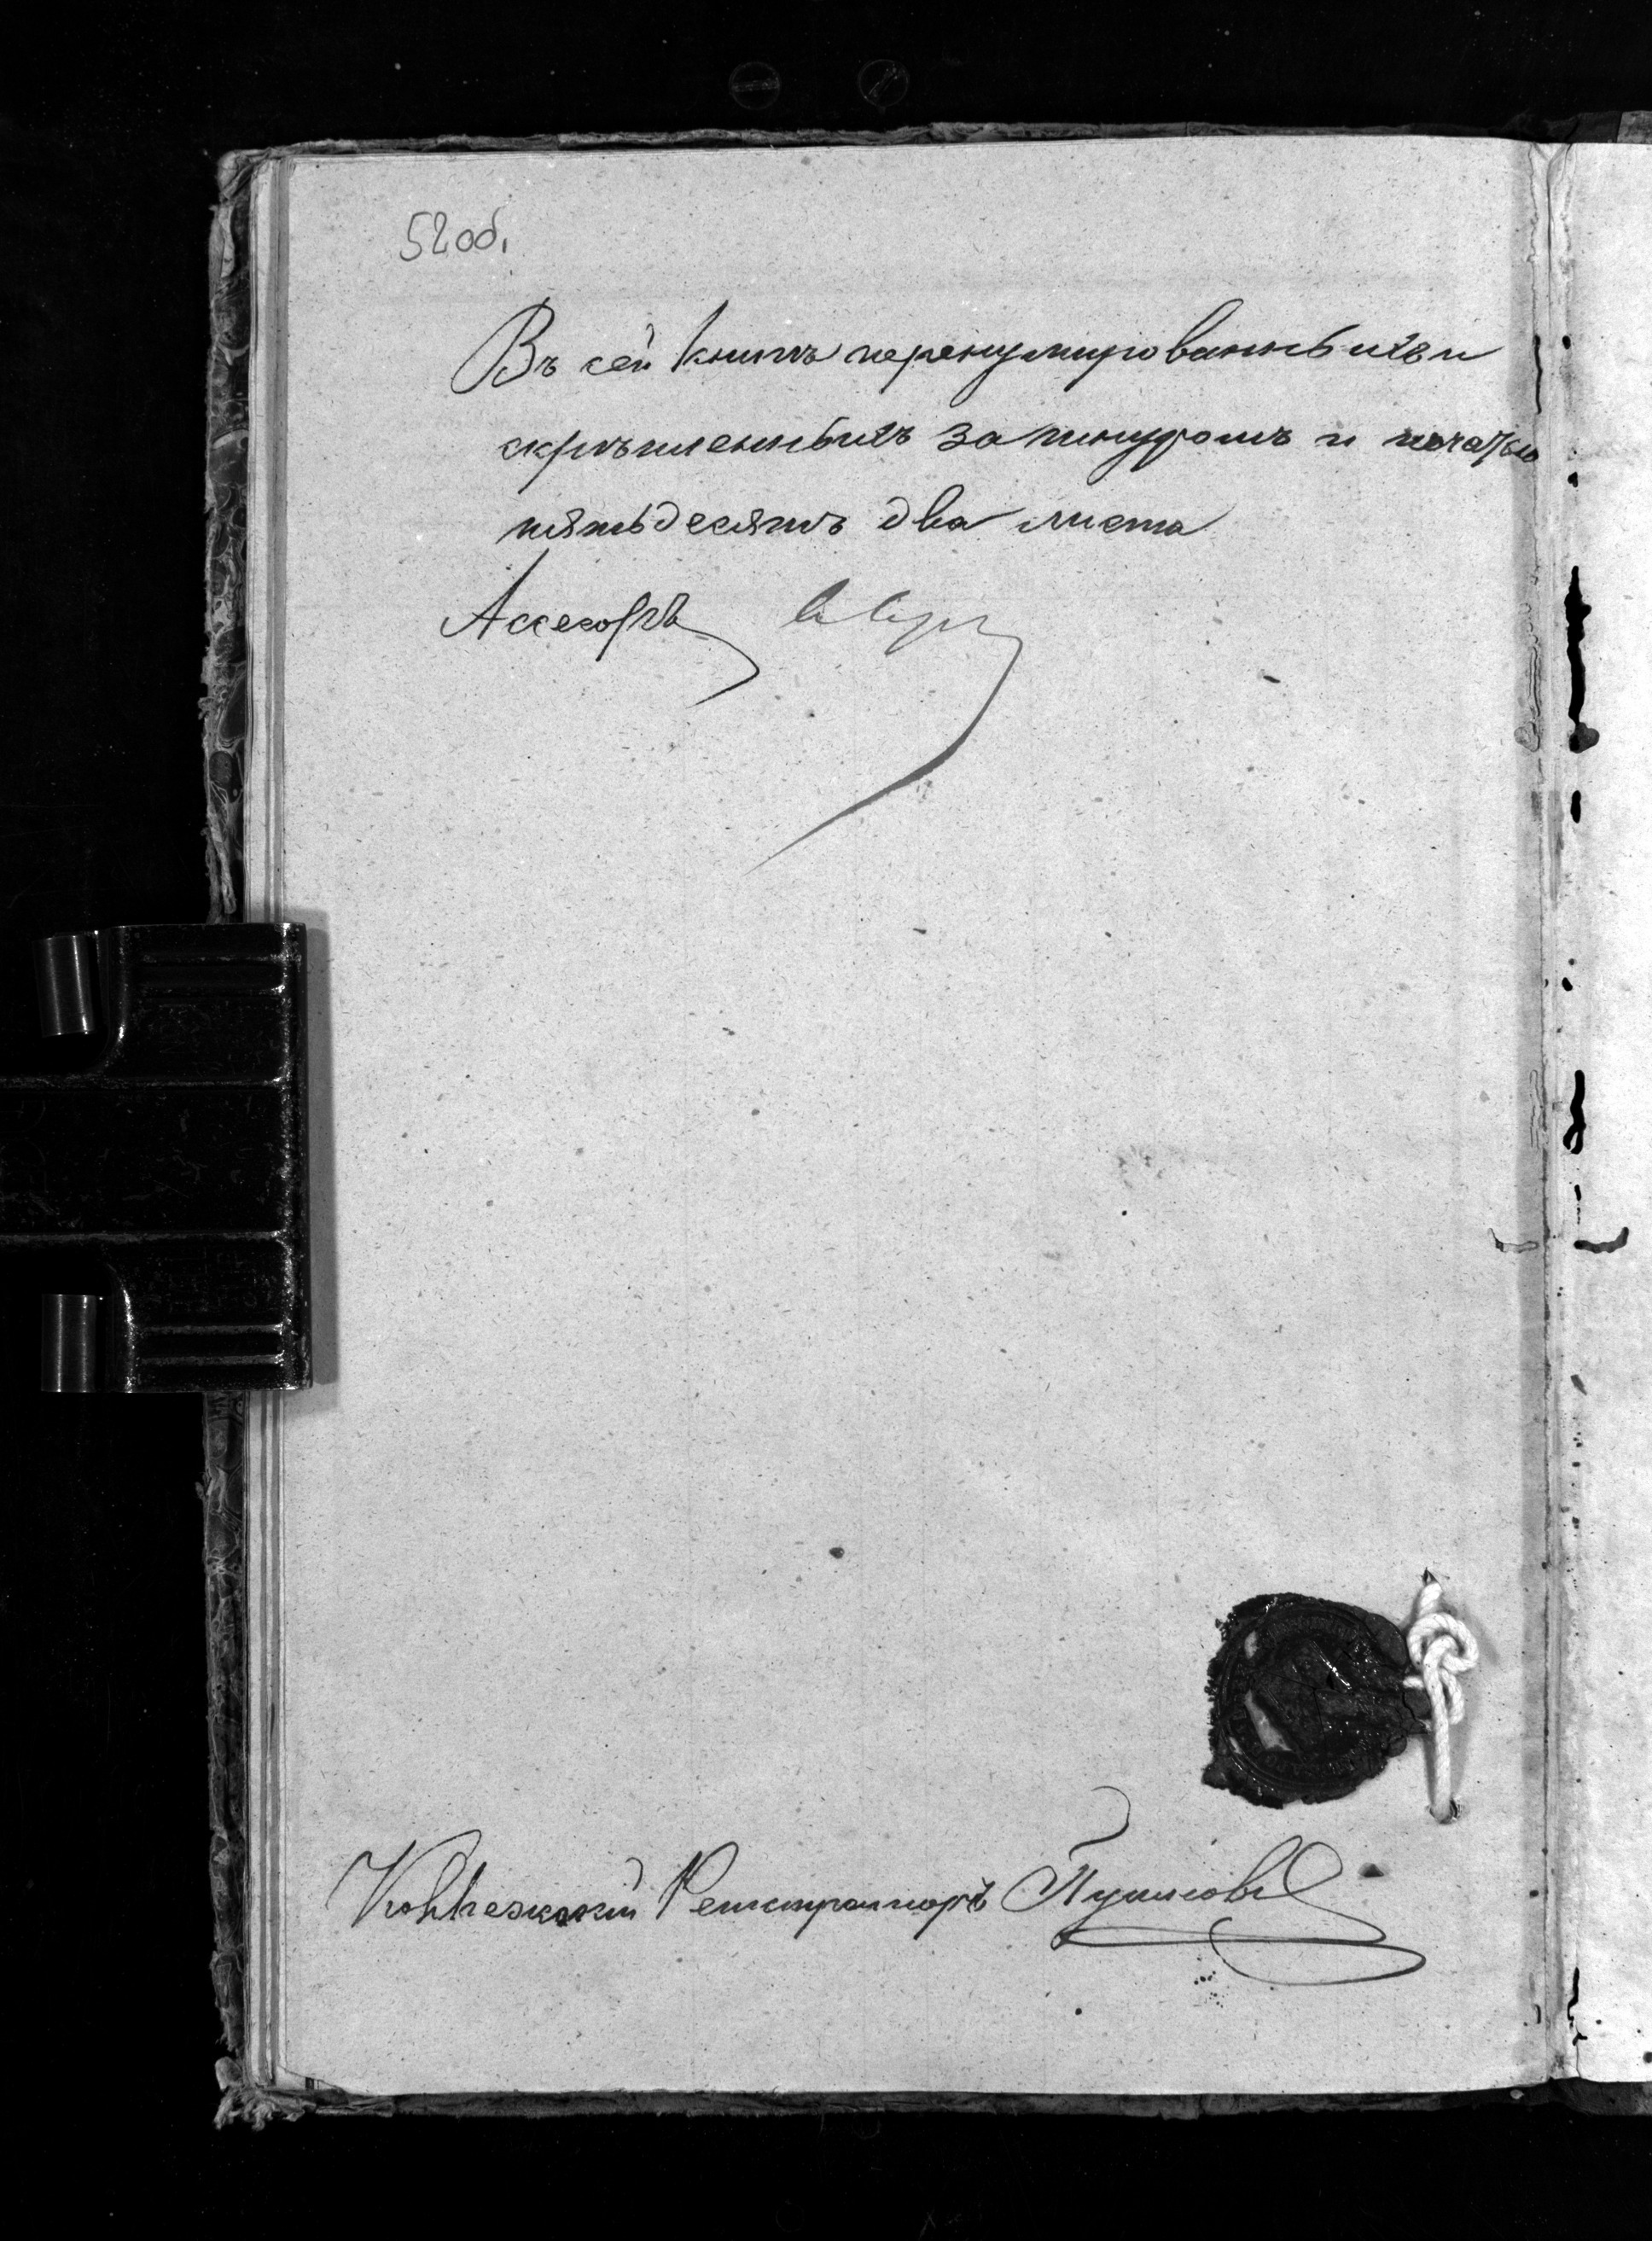 52 об.
Въ сей книгѣ перенумированныхъ и
скрѣпленныхъ за шнуромъ и печатью
пятьдесятъ два листа
Ассесоръ
Коллежскій Регистраторъ